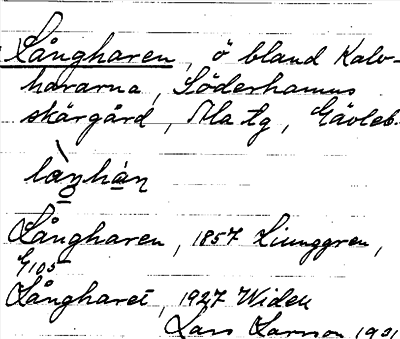 Långharen, ö bland Kalv-
hararna, Söderhamns
skärgård, Ala tg, Gävleb.
Långharen, 1857 Ljunggren,
G105
Långharet, 1927 Widén
Lars Larsson 1931